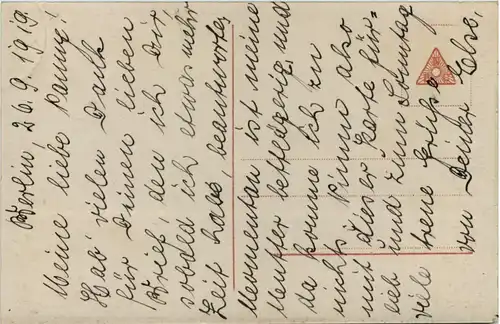 Berlin, 26.9.1919.
Meine liebe Panny!
Hab vielen Dank
für Deinen lieben
Brief, den ich Dir
sobald ich etwas mehr
Zeit habe, beantworte.
Momentan ist meine
Mutter bettlägerig und
da komme ich zu
nichts. Nimm also
mit dieser Karte für-
lieb und zum Sonntag
viele treue Grüsse
von Deiner Else.